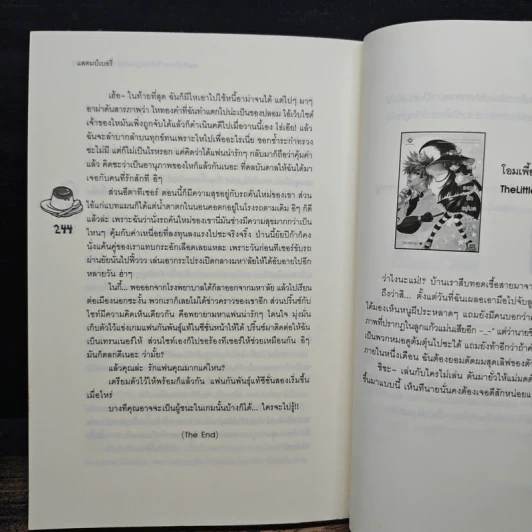 แสตมป์เบอรี่
เฮ้อ~ ในท้ายที่สุด ฉันก็มีไหเอาไปใช้หนี้อาม่าจนได้ แต่ไปๆ มาๆ
อาม่าดันสารภาพว่า ไหทองคำที่ฉันทำแตกไปน่ะเป็นของปลอม ไอ้เว็บไซต์
เจ้าของไหมันเพิ่งถูกจับได้แล้วก็ดำเนินคดีไปเมื่อวานนี้เอง โธ่เอ๊ย! แล้ว
ฉันจะลำบากลำบนทุกข์ทนเพราะไหไปเพื่ออะไรเนี่ย ชอกช้ำระกำทรวง
ชะไม่มี แต่ก็ไม่เป็นไรหรอก แค่คิดว่าได้แฟนน่ารักๆ กลับมาก็ถือว่าคุ้มค่า
แล้ว คิดซะว่าเป็นอานุภาพของไหก็แล้วกันเนอะ ที่ดลบันดาลให้ฉันได้มา
เจอกับคนที่รักสักที อิๆ
ส่วนอีตาทีเชอร์ ตอนนี้ก็มีความสุขอยู่กับรถคันใหม่ของเขา ส่วน
ไอ้แก่แบทแมนก็ได้แต่น้ำตาตกในนอนคอตกอยู่ในโรงรถตามเดิม อิๆ ก็ดี
แล้วล่ะ เพราะฉันว่านั่งรถคันใหม่ของเขานี่มันช่างมีความสุขมากกว่าเป็น
ไหนๆ คุ้มกับค่าเหนื่อยที่ลงทุนลงแรงไปซะจริงจริ๊ง ป่านนี้ยัยปีก้าก็คง
นั่งแค้นคู่ของเราแทบกระอักเลือดเลยแหละ เพราะวันก่อนทีเชอร์ขับรถ
ผ่านยัยนั่นไปฟิ้ววว เล่นเอากระโปรงเปิดกลางมหา'ลัยให้ได้อับอายไปอีก
หลายวัน ฮ่าๆ
ในที่นี้... พอออกจากโรงพยาบาลได้ก็ลาออกจากมหา'ลัย แล้วไปเรียน
ต่อเมืองนอกซะงั้น พวกเราก็เลยไม่ได้ข่าวคราวของเขาอีก ส่วนปริ้นซ์กับ
ไซท์มีความคิดเห็นเดียวกัน คืออยากจะหาแฟนน่ารักๆ โดนใจ มุ่งมั่น
เก็บตัวไว้แข่งเกมแฟนกันพันธุ์แท้ซีซั่นหน้าให้ได้ ปริ้นซ์มาติดต่อให้ฉัน
เป็นเทรนเนอร์ให้ ส่วนไซท์เองก็ไปขอร้องทีเชอร์ให้ช่วยเหมือนกัน อิๆ
มันก็ตลกดีเนอะ ว่ามั้ย?
แล้วคุณล่ะ รักแฟนคุณมากแค่ไหน?
เตรียมตัวไว้ให้พร้อมก็แล้วกัน แฟนกันพันธุ์แท้ซีซั่นสองเริ่มขึ้น
เมื่อไหร่
บางทีคุณอาจจะเป็นผู้ชนะในเกมนั้นบ้างก็ได้... ใครจะไปรู้!!
(The End)
244
TheLittle
ว่าไงนะแม่!? บ้านเราสืบทอดเชื้อสายมาจา
ถึงว่าสิ... ตั้งแต่วันที่ฉันเผลอเอามือไปจับลู
ได้มองเห็นหนูผีประหลาดๆ แถมยังมีคนบอกว่า
ภาพที่ปรากฏในลูกแก้วแม่นเสียอีก -_-" แต่ว่านายชี
เป็นพวกหมอดูต้มตุ๋นไปซะได้ แถมยังท้าอีกว่าถ้าค
ภายในหนึ่งเดือน ฉันต้องยอมตัดผมสุดเลิฟของตัว
ชิชะ~ เล่นกับใครไม่เล่น ดันมายั่วให้แม่มดต
ขึ้นมาแบบนี้ เห็นทีนายนั่นคงต้องเจอดีสักหน่อยแ